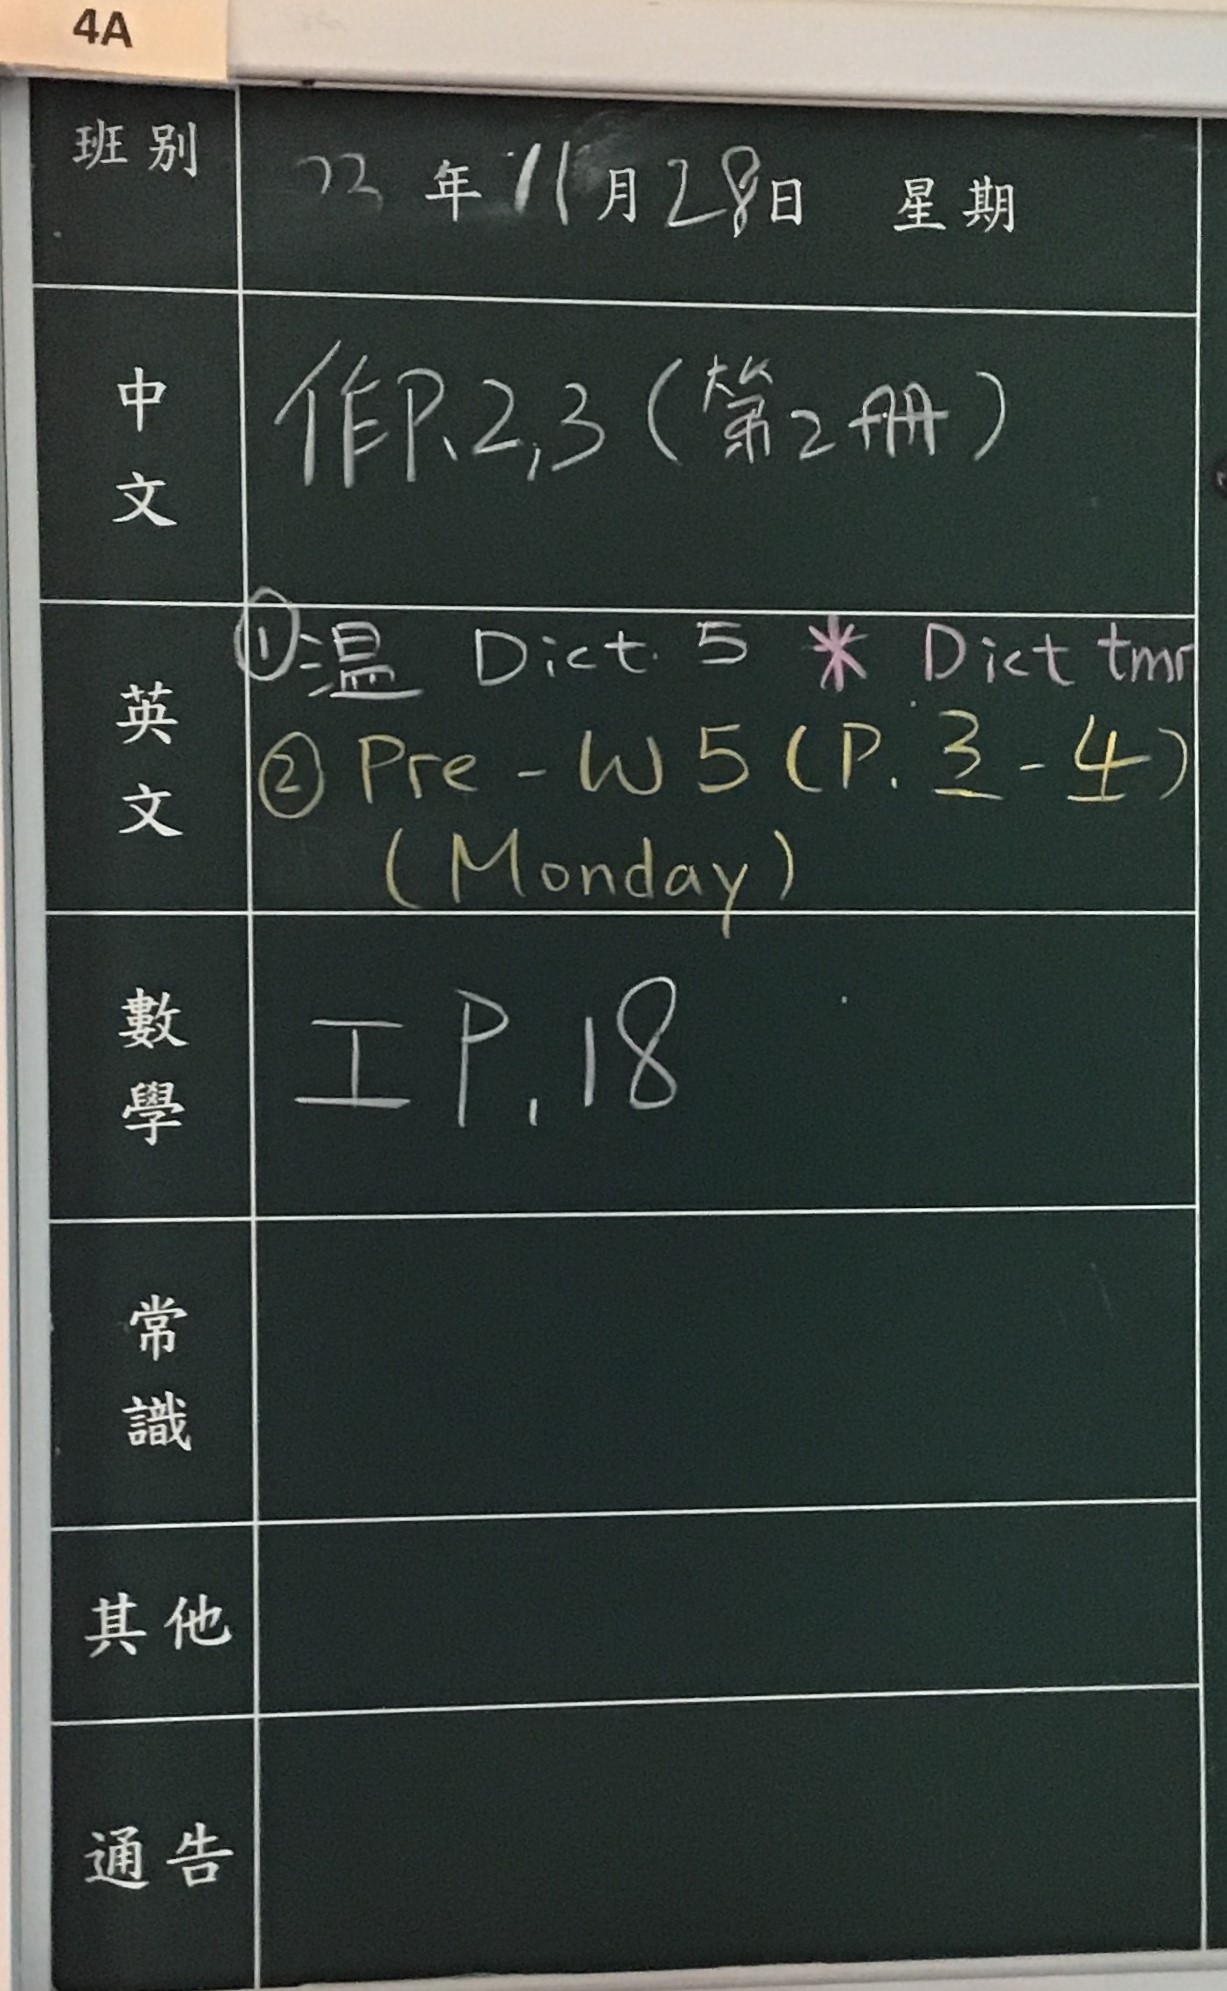 4A
班別
23 年 11 月 28 日 星期
中文
作P.2,3 (第2冊)
英文
① 温 Dict. 5 * Dict tmr
② Pre-W5 (P. 3 - 4)
(Monday)
數學
工 P. 18
常識
其他
通告